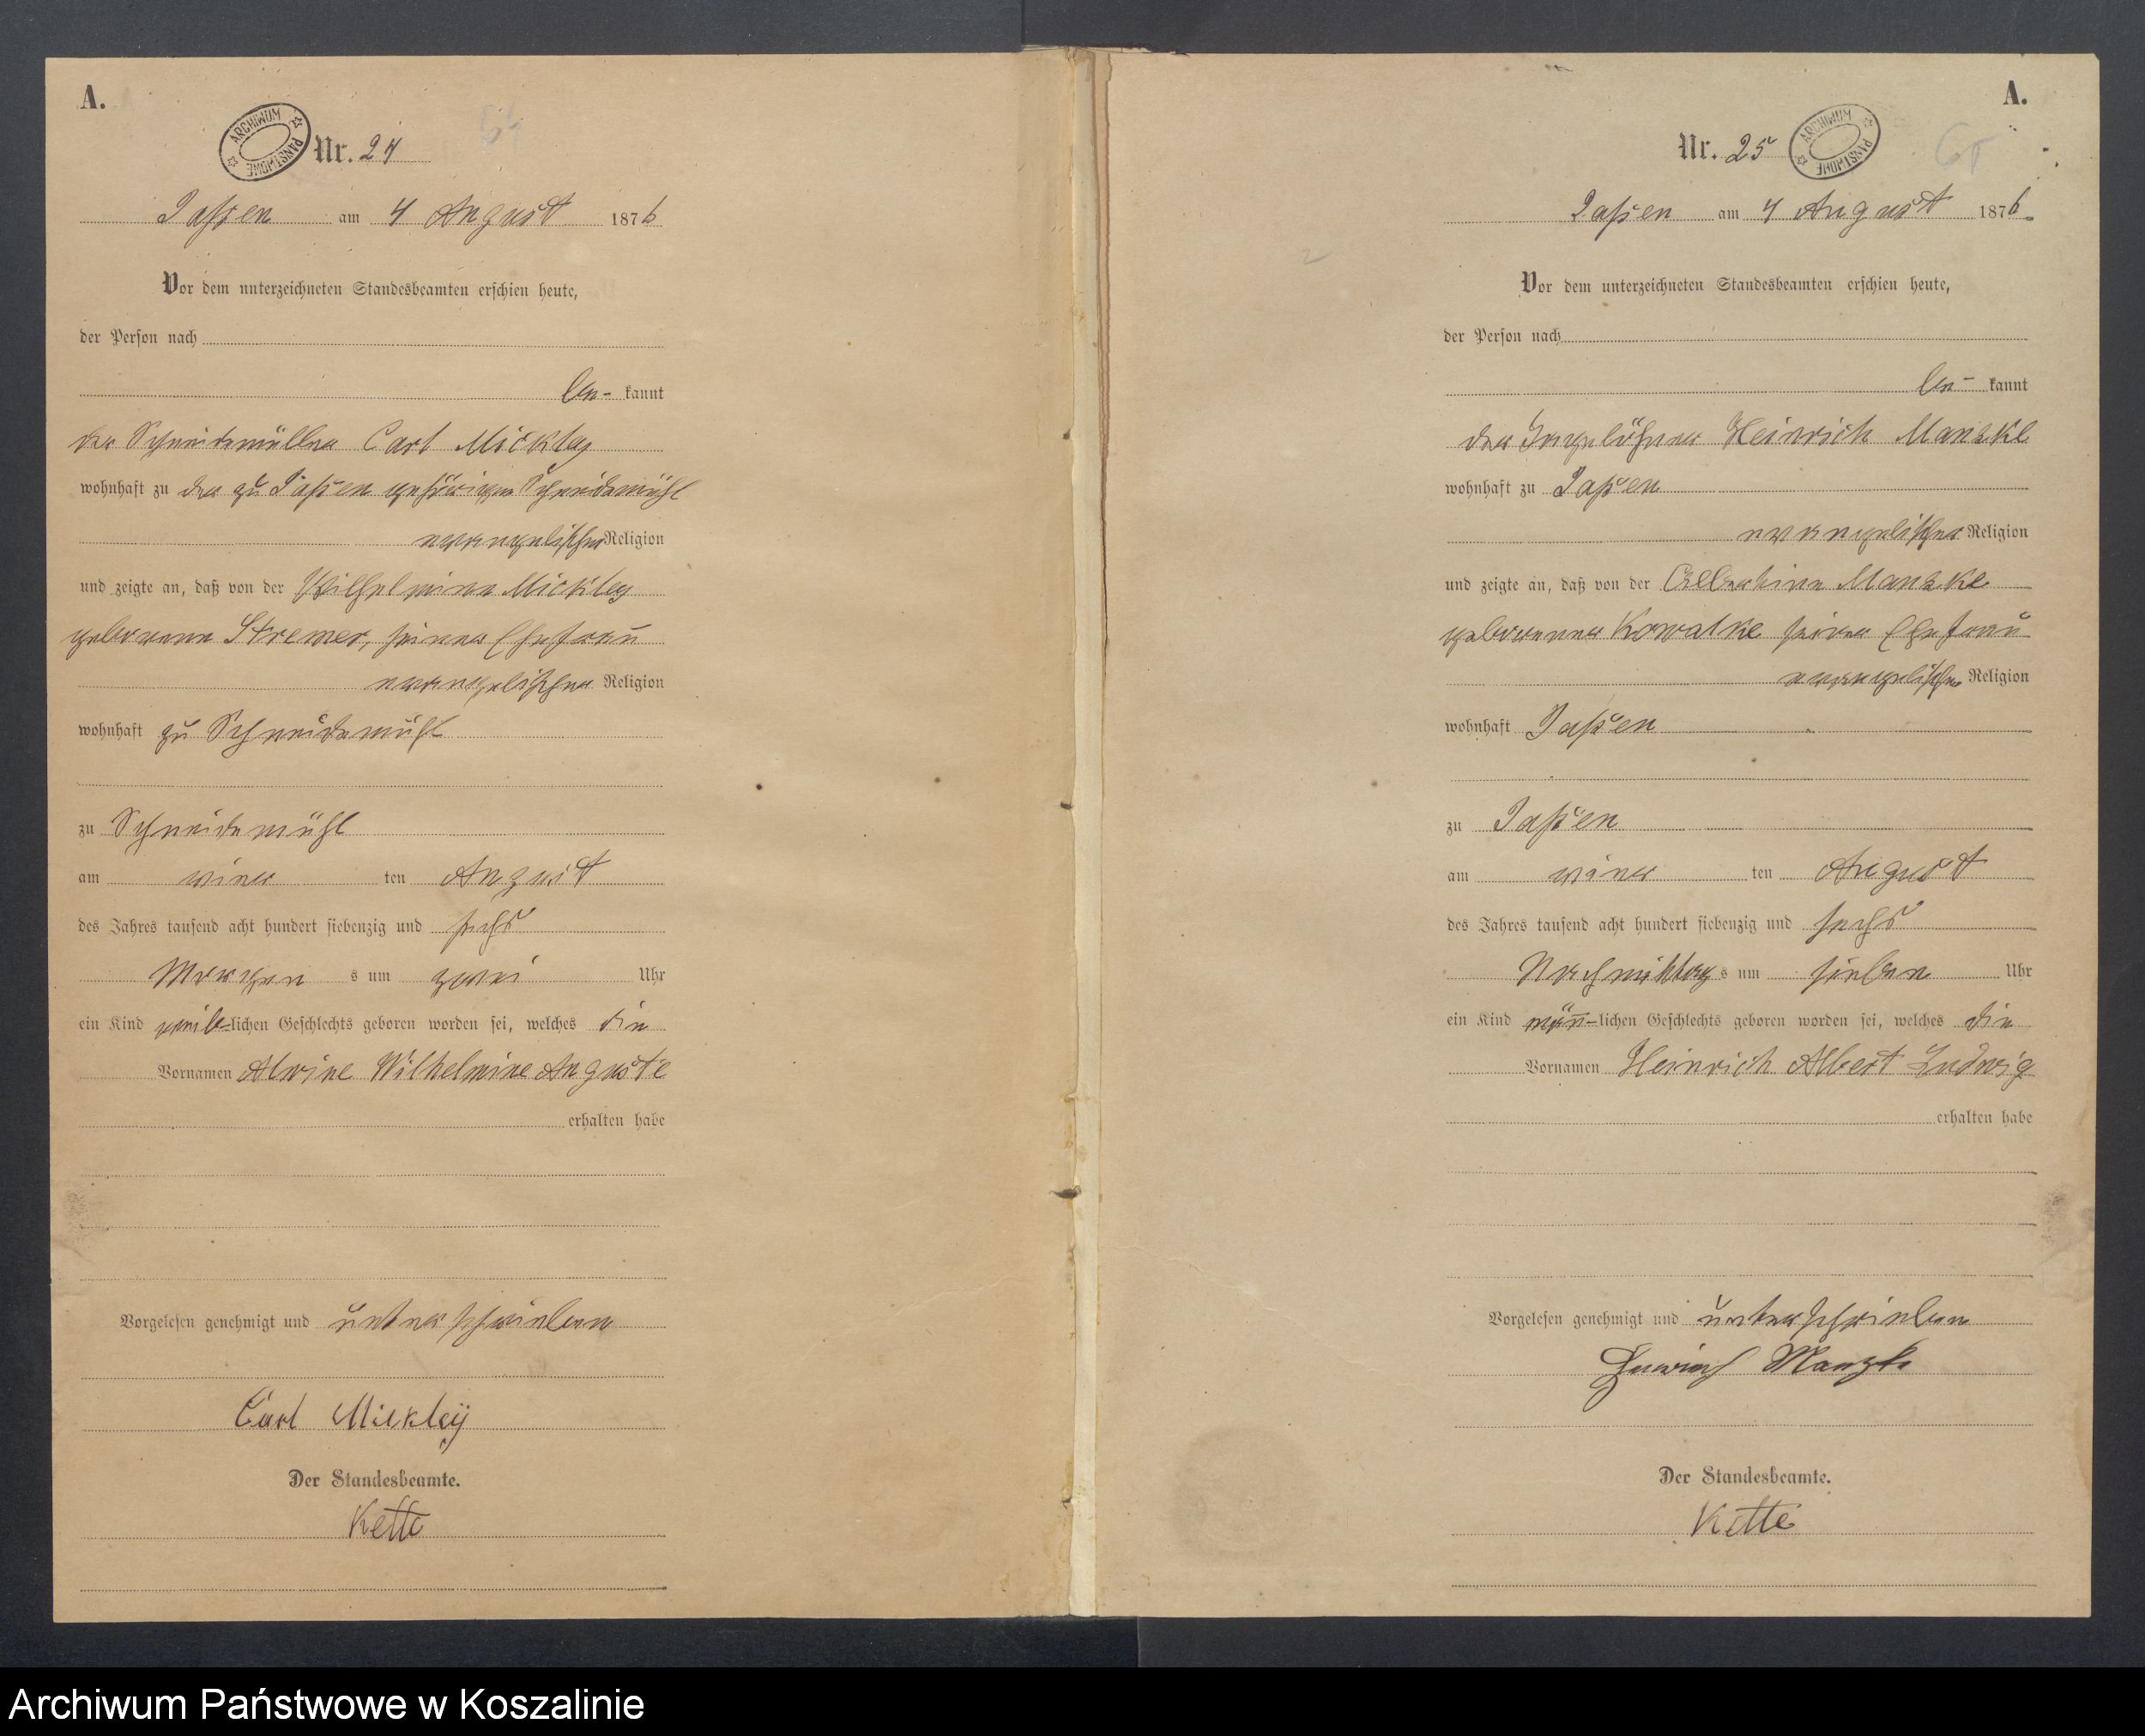 A.
ARCHIWUM PAŃSTWOWE
Nr. 24
64
Jassen am 4 August 1876
Vor dem unterzeichneten Standesbeamten erschien heute,
der Person nach
be- kannt
der Schneidemüller Carl Mickley
wohnhaft zu der zu Jassen gehörigen Schneidemühl
evangelischer Religion
und zeigte an, daß von der Wilhelmine Mickley
geborene Stremer, seiner Ehefrau
evangelischer Religion
wohnhaft zu Schneidemühl
zu Schneidemühl
am ten August
des Jahres tausend acht hundert siebenzig und sechs
Morgen s um zwei Uhr
ein Kind weib-lichen Geschlechts geboren worden sei, welches die
Vornamen Alwine Wilhelmine Auguste
erhalten habe
Vorgelesen genehmigt und unterschrieben
Carl Mickley
Der Standesbeamte.
Kette
A.
Nr. 25
ARCHIWUM PAŃSTWOWE
65
Jassen am 4 August 1876.
Vor dem unterzeichneten Standesbeamten erschien heute,
der Person nach
be- kannt
der Tagelöhner Heinrich Manzke
wohnhaft zu Jassen
evangelischer Religion
und zeigte an, daß von der Albertine Manzke
geborener Kowalke seiner Ehefrau
evangelischer Religion
wohnhaft Jassen
zu Jassen
am ten August
des Jahres tausend acht hundert siebenzig und sechs
Nachmittag s um sieben Uhr
ein Kind männ-lichen Geschlechts geboren worden sei, welches die
Vornamen Heinrich Albert Ludwig
erhalten habe
Vorgelesen genehmigt und unterschrieben
Heinrich Manzke
Der Standesbeamte.
Kette
Archiwum Państwowe w Koszalinie